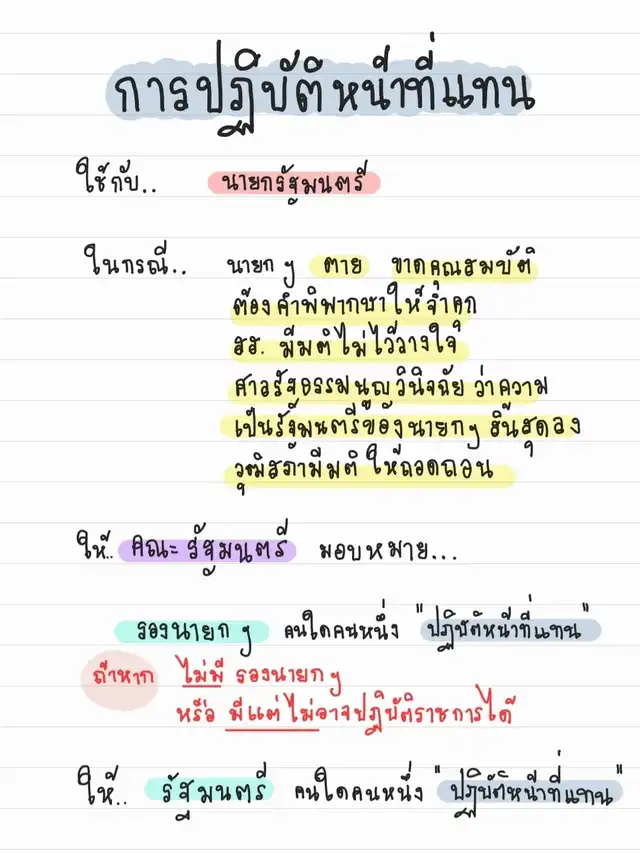 การปฏิบัติหน้าที่แทน
ใช้กับ.. นายกรัฐมนตรี
ในกรณี.. นายก ฯ ตาย ขาดคุณสมบัติ
ต้องคำพิพากษาให้จำคุก
สส. มีมติไม่ไว้วางใจ
ศาลรัฐธรรมนูญวินิจฉัย ว่าความ
เป็นรัฐมนตรีของนายก ฯ สิ้นสุดลง
วุฒิสภามีมติ ให้ถอดถอน
ให้.. คณะรัฐมนตรี มอบหมาย...
รองนายก ฯ คนใดคนหนึ่ง "ปฏิบัติหน้าที่แทน"
ถ้าหาก ไม่มี รองนายก ฯ
หรือ มีแต่ไม่อาจปฏิบัติราชการได้
ให้.. รัฐมนตรี คนใดคนหนึ่ง "ปฏิบัติหน้าที่แทน"